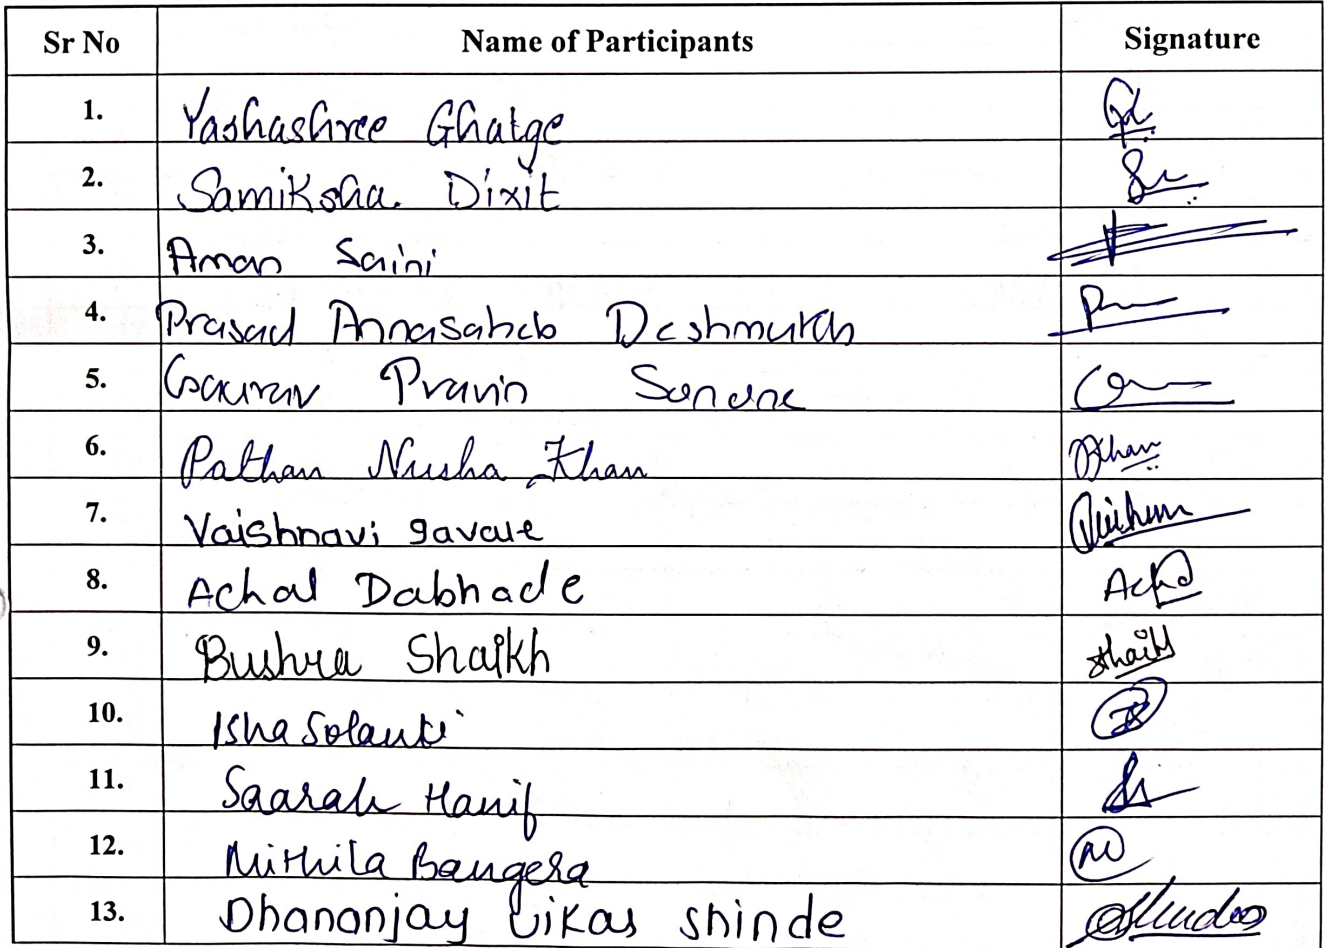 Sr No Name of Participants Signature
1. Yashashree Ghatge
2. Samiksha. Dixit
3. Aman Saini
4. Prasad Annasaheb Deshmukh
5. Gaurav Pravin Sonone
6. Pathan Nusha Khan Khan
7. Vaishnavi gavale
8. Achal Dabhade Achal
9. Bushra Shaikh Shaikh
10. Isha Solanki
11. Saarah Hanif
12. Mithila Bangera
13. Dhananjay Vikas shinde